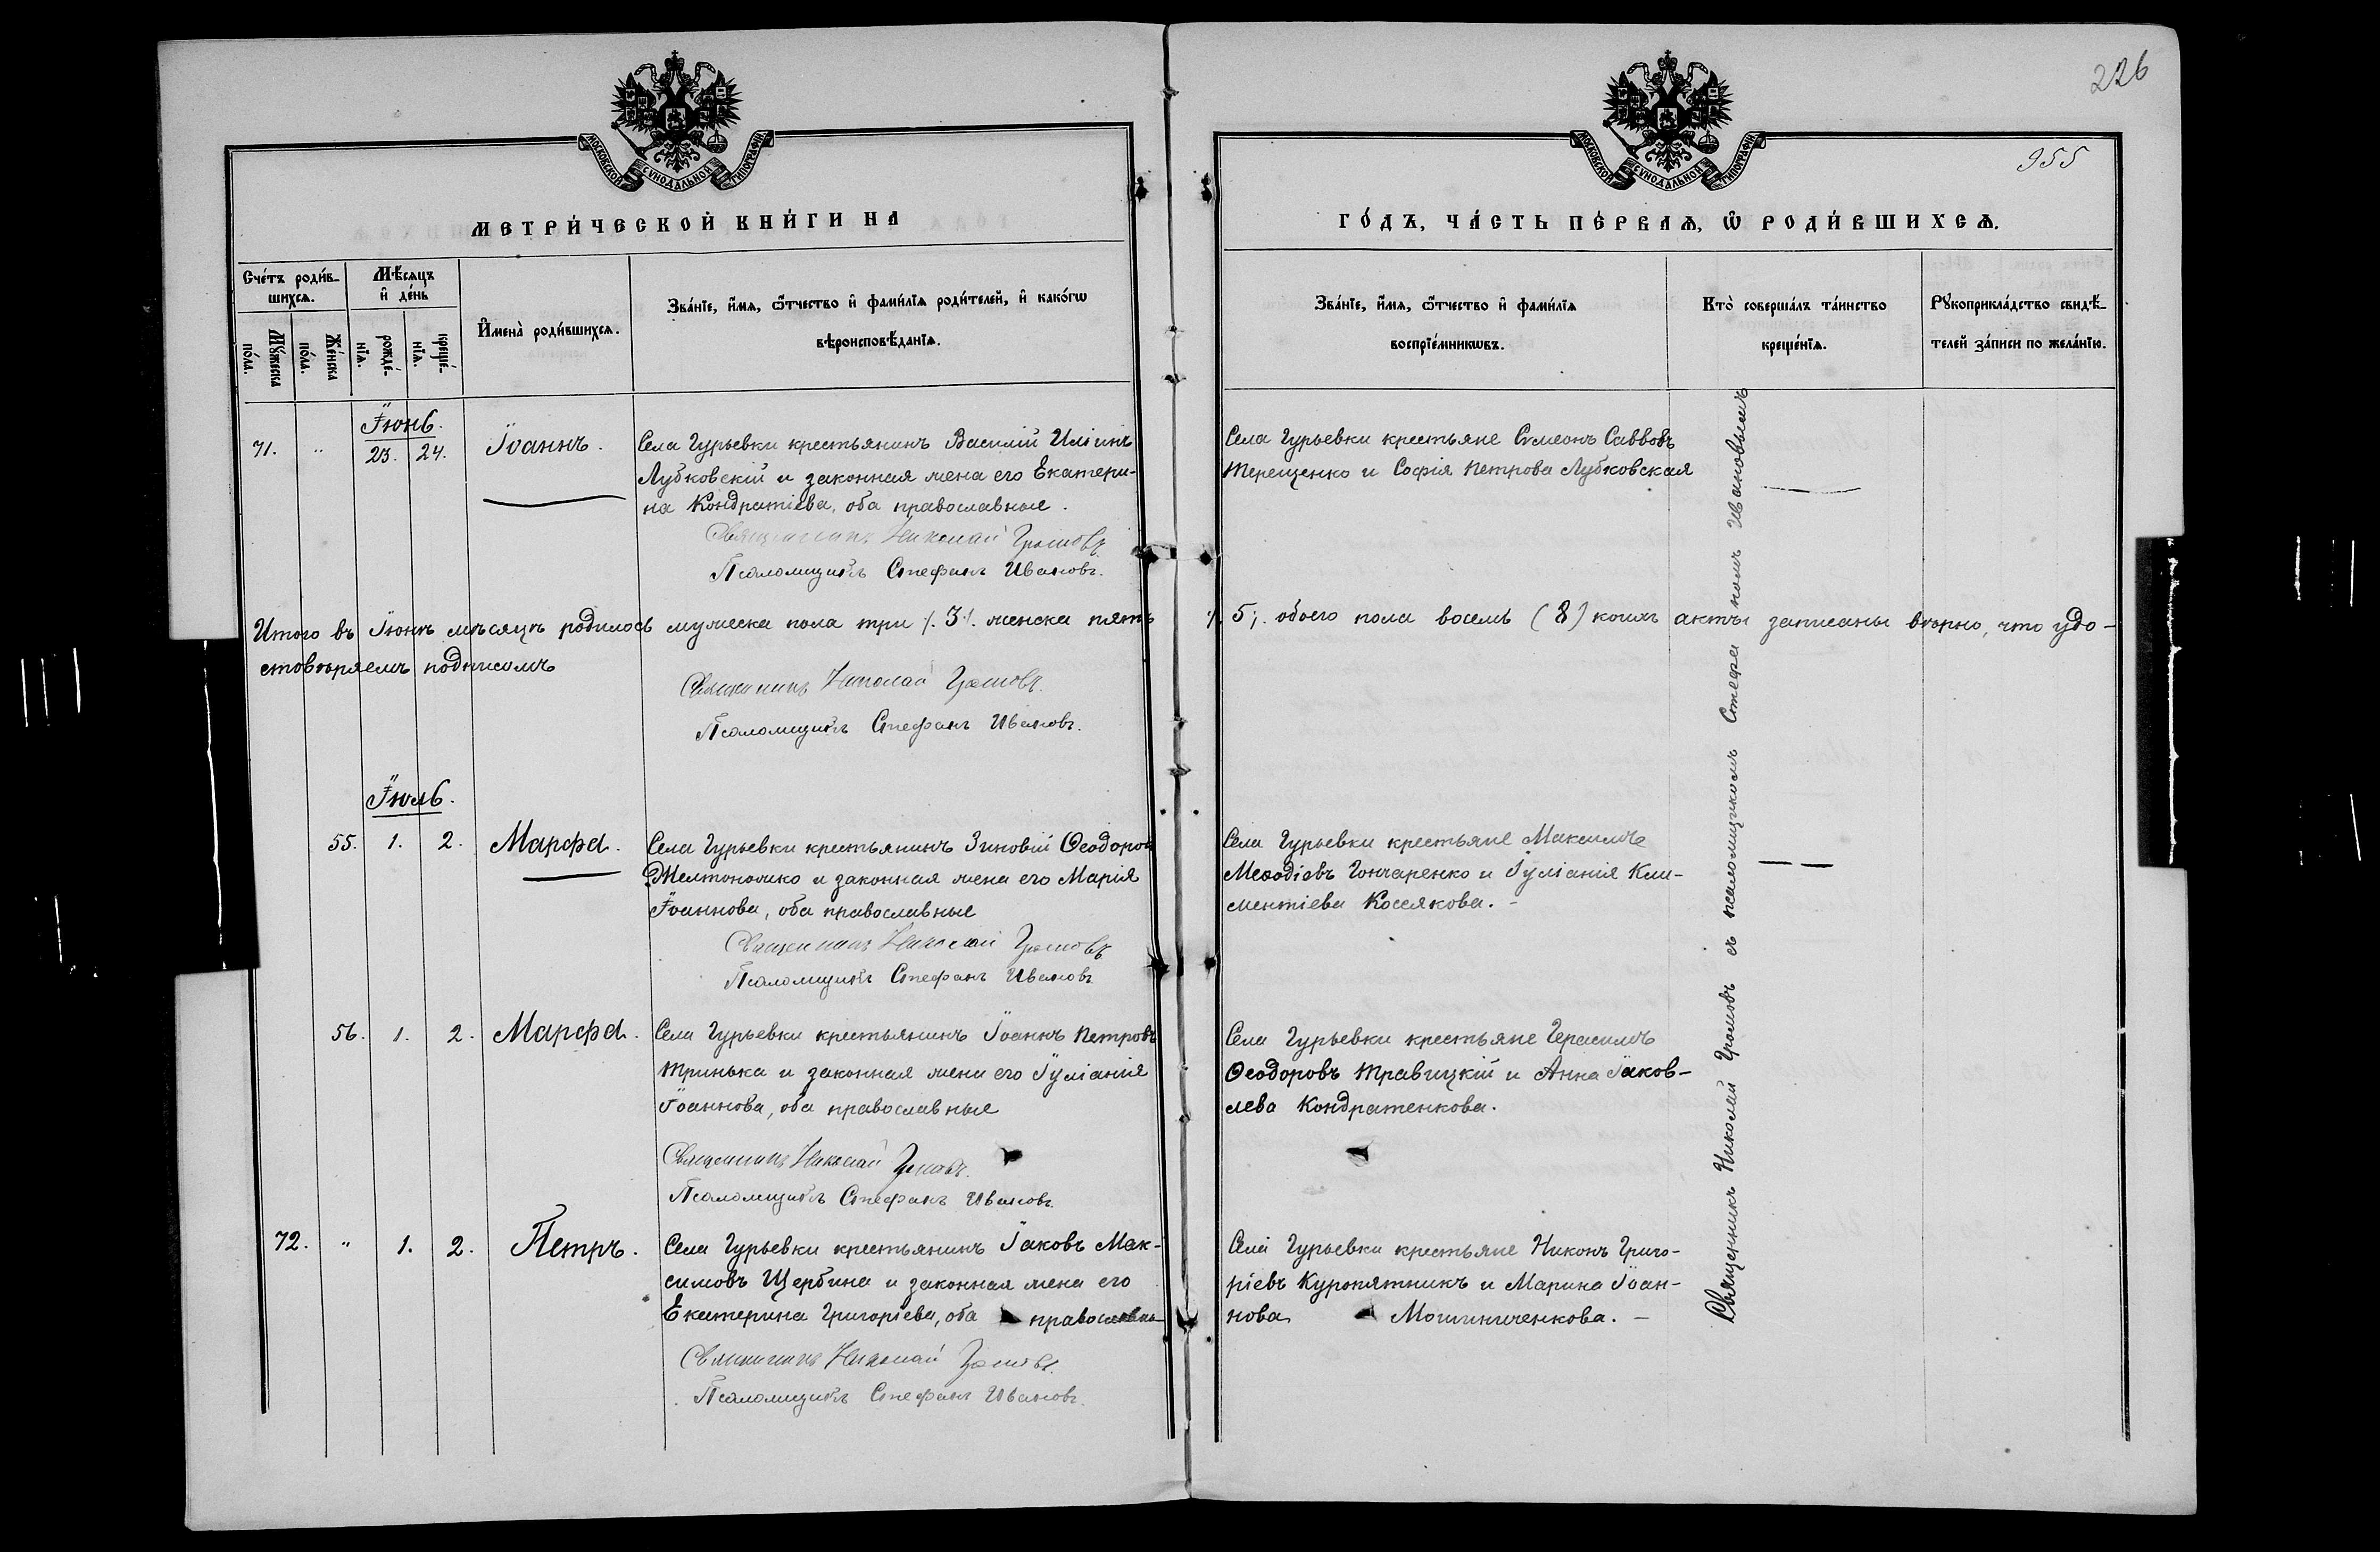 226
955
МОСКОВСКОЙ СѴНОДАЛЬНОЙ ТИПОГРАФІИ
МОСКОВСКОЙ СѴНОДАЛЬНОЙ ТИПОГРАФІИ
МЕТРИ́ЧЕСКОЙ КНИ́ГИ НА
ГО́ДЪ, ЧА́СТЬ ПЕ́РВАѦ, Ѽ РОДИ́ВШИХСѦ.
Сче́тъ роди́в-
шихсѧ.
Мꙋжеска по́ла.
Же́нска по́ла.
Мѣ́сѧцъ
и҆ де́нь
рожде́-
нїѧ.
креще́-
нїѧ.
И҆мена̀ роди́вшихсѧ.
Зва́нїе, и҆́мѧ, ѻ҆́тчество и҆ фами́лїѧ роди́телей, и҆ како́гѡ
вѣроисповѣ́данїѧ.
Зва́нїе, и҆́мѧ, ѻ҆́тчество и҆ фами́лїѧ
воспрїе́мникѡвъ.
Кто̀ соверша́лъ та́инство
креще́нїѧ.
Рꙋкоприкла́дство свидѣ́-
телей за́писи по жела́нїю.
Іюнь.
71. " 23. 24. Іоаннъ.
Села Гурьевки крестьянинъ Василій Иліинъ
Лубковскій и законная жена его Екатери-
на Кондратіева, оба православные.
Священникъ Николай Громовъ
Псаломщикъ Стефанъ Ивановъ.
Села Гурьевки крестьяне Симеонъ Саввовъ
Терещенко и Софія Петрова Лубковская
Итого въ Іюнѣ мѣсяцѣ родилось мужеска пола три /. 3 /. женска пять /. 5 /. обоего пола восемь (8) коихъ акты записаны вѣрно, что удо-
стовѣряемъ подписомъ
Священникъ Николай Громовъ.
Псаломщикъ Стефанъ Ивановъ.
Іюль.
55. 1. 2. Марфа.
Села Гурьевки крестьянинъ Зиновій Ѳеодоров
Желтоножко и законная жена его Марія
Іоаннова, оба православные
Священникъ Николай Громовъ
Псаломщикъ Стефанъ Ивановъ
Села Гурьевки крестьяне Максимъ
Меѳодіевъ Гончаренко и Іуліанія Кли-
ментіева Косякова. -
56. 1. 2. Марфа.
Села Гурьевки крестьянинъ Іоаннъ Петровъ
Тринька и законная жена его Іуліанія
Іоаннова, оба православные
Священникъ Николай Громовъ.
Псаломщикъ Стефанъ Ивановъ.
Села Гурьевки крестьяне Герасимъ
Ѳеодоровъ Травицкій и Анна Іаков-
лева Кондратенкова.
72. " 1. 2. Петръ.
Села Гурьевки крестьянинъ Іаковъ Мак-
симовъ Щербина и законная жена его
Екатерина Григоріева, оба православны
Священникъ Николай Громовъ.
Псаломщикъ Стефанъ Ивановъ.
Села Гурьевки крестьяне Никонъ Григо-
ріевъ Куропятникъ и Марина Іоан-
нова Мошниченкова. -
Священникъ Николай Громовъ съ псаломщикомъ Стефаномъ Ивановымъ